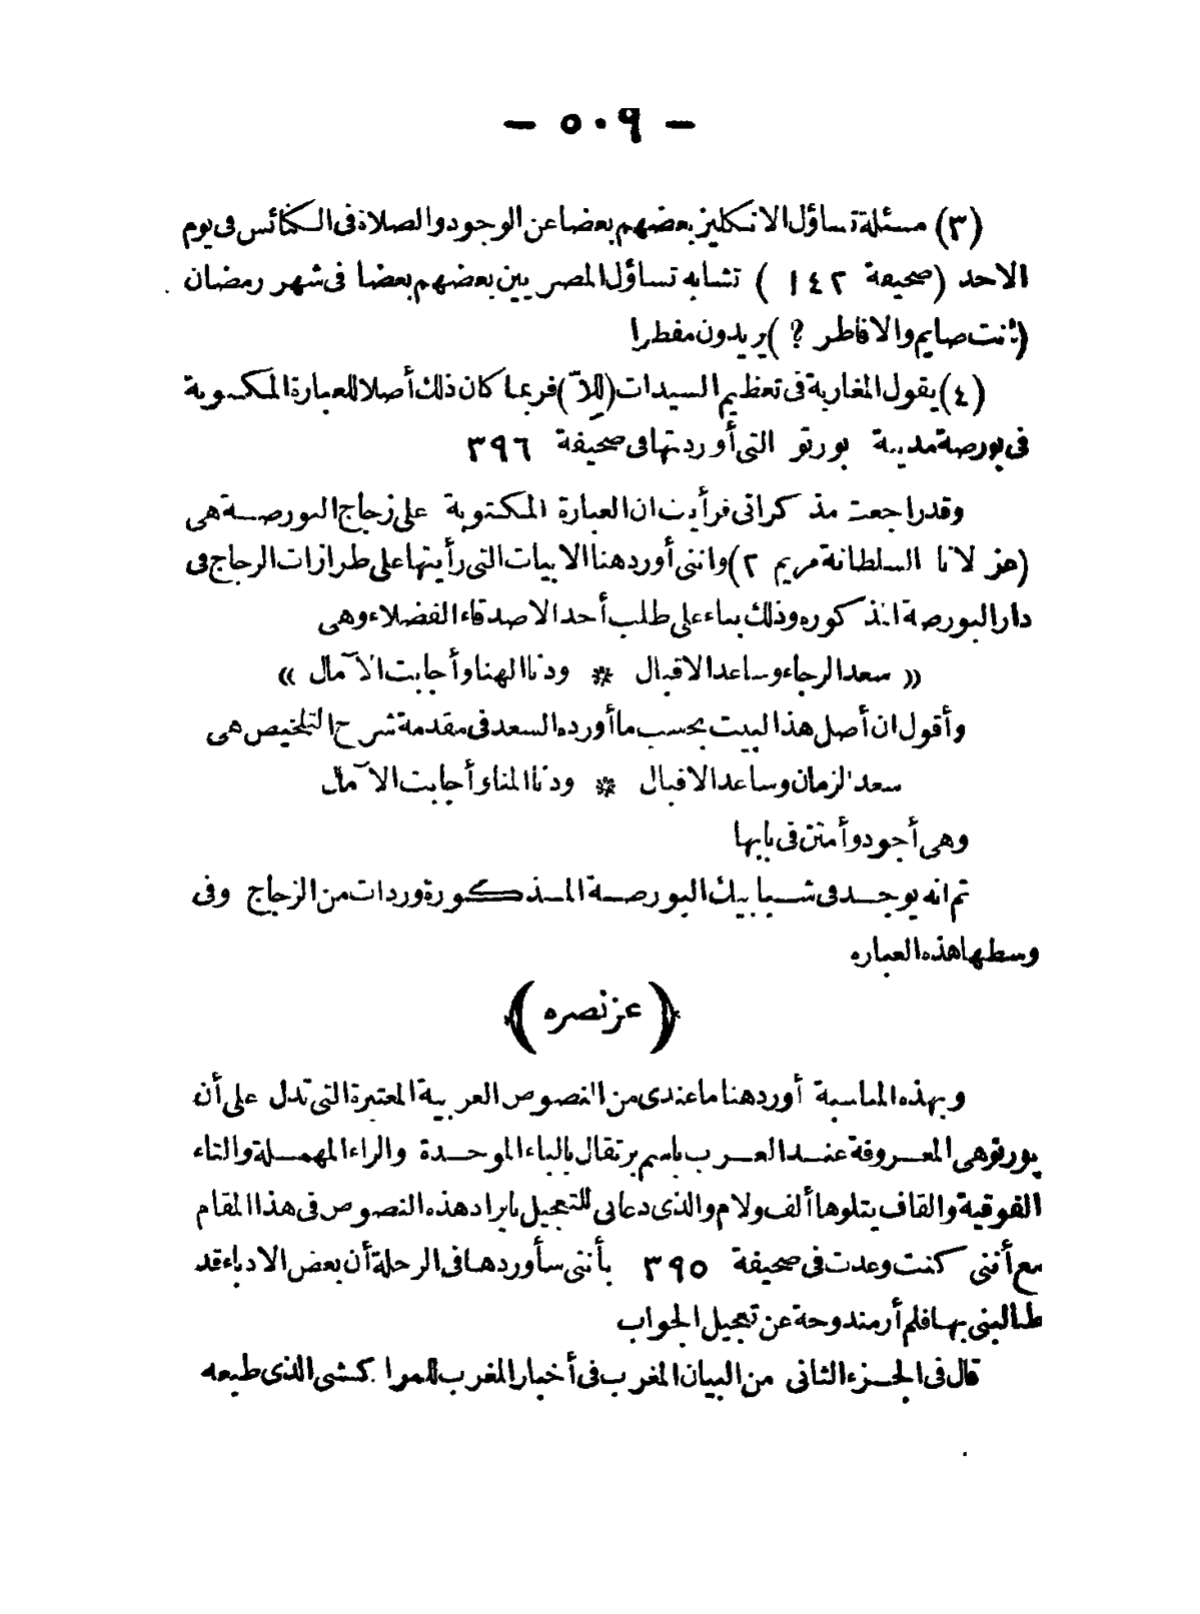 — ٥٠٩ —
(٣) مسئلة تساؤل الانكليز بعضهم بعضا عن الوجود والصلاة فى الكنائس فى يوم
الاحد (صحيفة ١٤٢ ) تشابه تساؤل المصريين بعضهم بعضا فى شهر رمضان
(أنت صايم والا فاطر ? ) يريدون مفطرا
(٤) يقول المغاربة فى تعظيم السيدات (للاّ) فربما كان ذلك أصلا للعبارة المكتوبة
فى بورصة مدينة بورتو التى أوردتها فى صحيفة ٣٩٦
وقد راجعت مذكراتى فرأيت ان العبارة المكتوبة على زجاج البورصة هى
(عز لانا السلطانة مريم ٢) واننى أورد هنا الابيات التى رأيتها على طرازات الزجاج فى
دار البورصة المذكوره وذلك بناء على طلب أحد الاصدقاء الفضلاء وهى
« سعد الرجاء وساعد الاقبال * ودنا الهنا وأجابت الآمال »
وأقول ان أصل هذا البيت بحسب ما أورده السعد فى مقدمة شرح التلخيص هى
سعد الزمان وساعد الاقبال * ودنا المنا وأجابت الآمال
وهى أجود وأمتن فى بابها
ثم انه يوجد فى شبابيك البورصة المذكورة وردات من الزجاج وفى
وسطها هذه العباره
﴿ عز نصره ﴾
وبهذه المناسبة أورد هنا ما عندى من النصوص العربية المعتبرة التى تدل على أن
بورتو هى المعروفة عند العرب باسم برتقال بالباء الموحدة والراء المهملة والتاء
الفوقية والقاف يتلوها ألف ولام والذى دعانى للتعجيل بايراد هذه النصوص فى هذا المقام
مع أننى كنت وعدت فى صحيفة ٣٩٥ بأننى سأوردها فى الرحلة أن بعض الادباء قد
طالبنى بها فلم أر مندوحة عن تعجيل الجواب
قال فى الجزء الثانى من البيان المغرب فى أخبار المغرب للمراكشى الذى طبعه